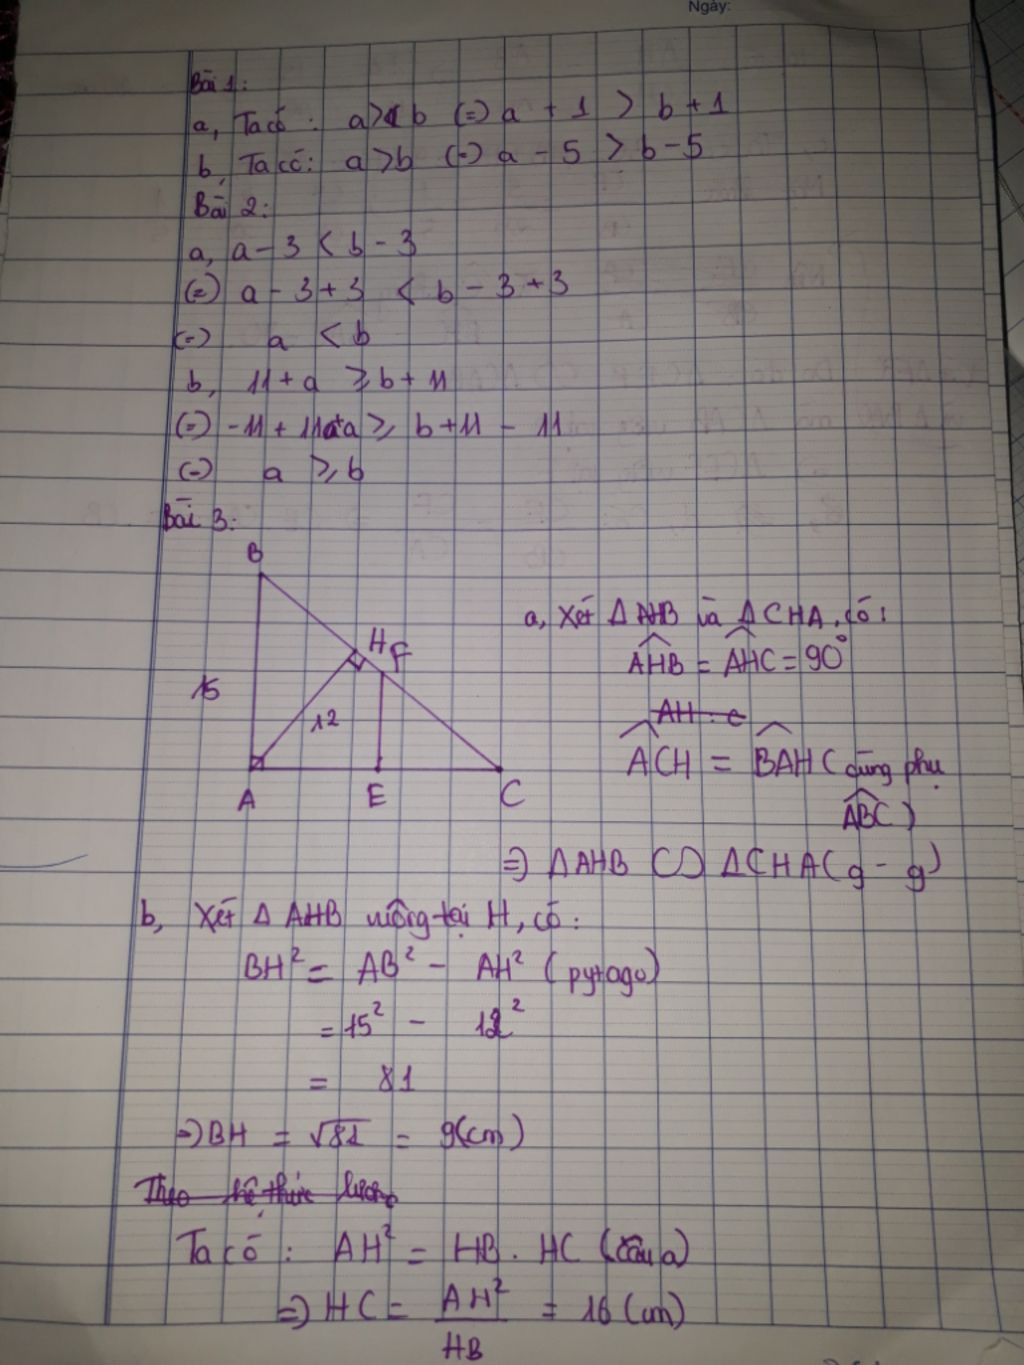 Ngày:
Bài 1:
a, Ta có: a > b (=) a + 1 > b + 1
b, Ta có: a > b (=) a - 5 > b - 5
Bài 2:
a, a - 3 < b - 3
(=) a - 3 + 3 < b - 3 + 3
(=) a < b
b, 11 + a ≥ b + 11
(=) -11 + 11 + a ≥ b + 11 - 11
(=) a ≥ b
Bài 3:
B
H F
15
12
A E C
a, Xét Δ AHB và Δ CHA, có:
AHB = AHC = 90°
AH : c
ACH = BAH ( cùng phụ
ABC )
=) Δ AHB ∽ Δ CHA ( g - g )
b, Xét Δ AHB vuông tại H, có:
BH² = AB² - AH² ( pytago )
= 15² - 12²
= 81
=) BH = √81 = 9(cm)
Theo hệ thức lượng
Ta có: AH² = HB . HC ( câu a )
=) HC = AH² / HB = 16 (cm)